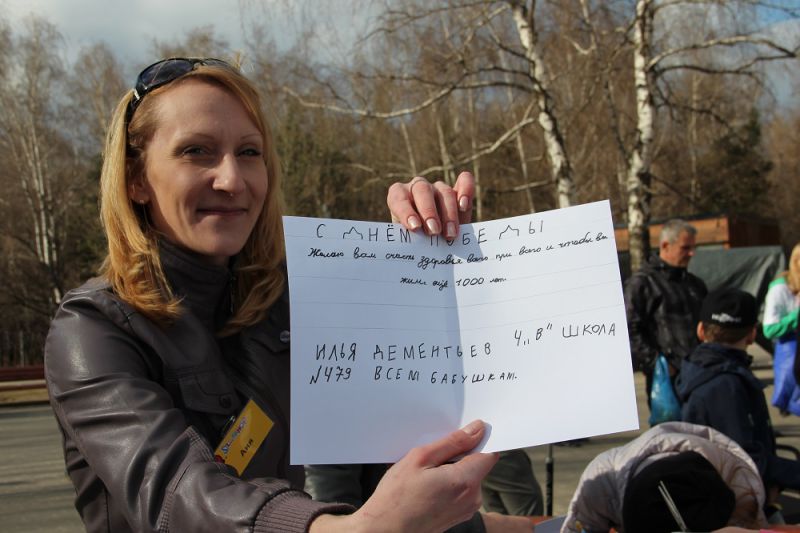 С ДНЁМ ПОБЕДЫ
Желаю вам счастя здоровья всего при всего и чтобы вы
жили ещё 1000 лет.
ИЛЬЯ ДЕМЕНТЬЕВ 4 „В" ШКОЛА
№479 ВСЕМ БАБУШКАМ.
Аня